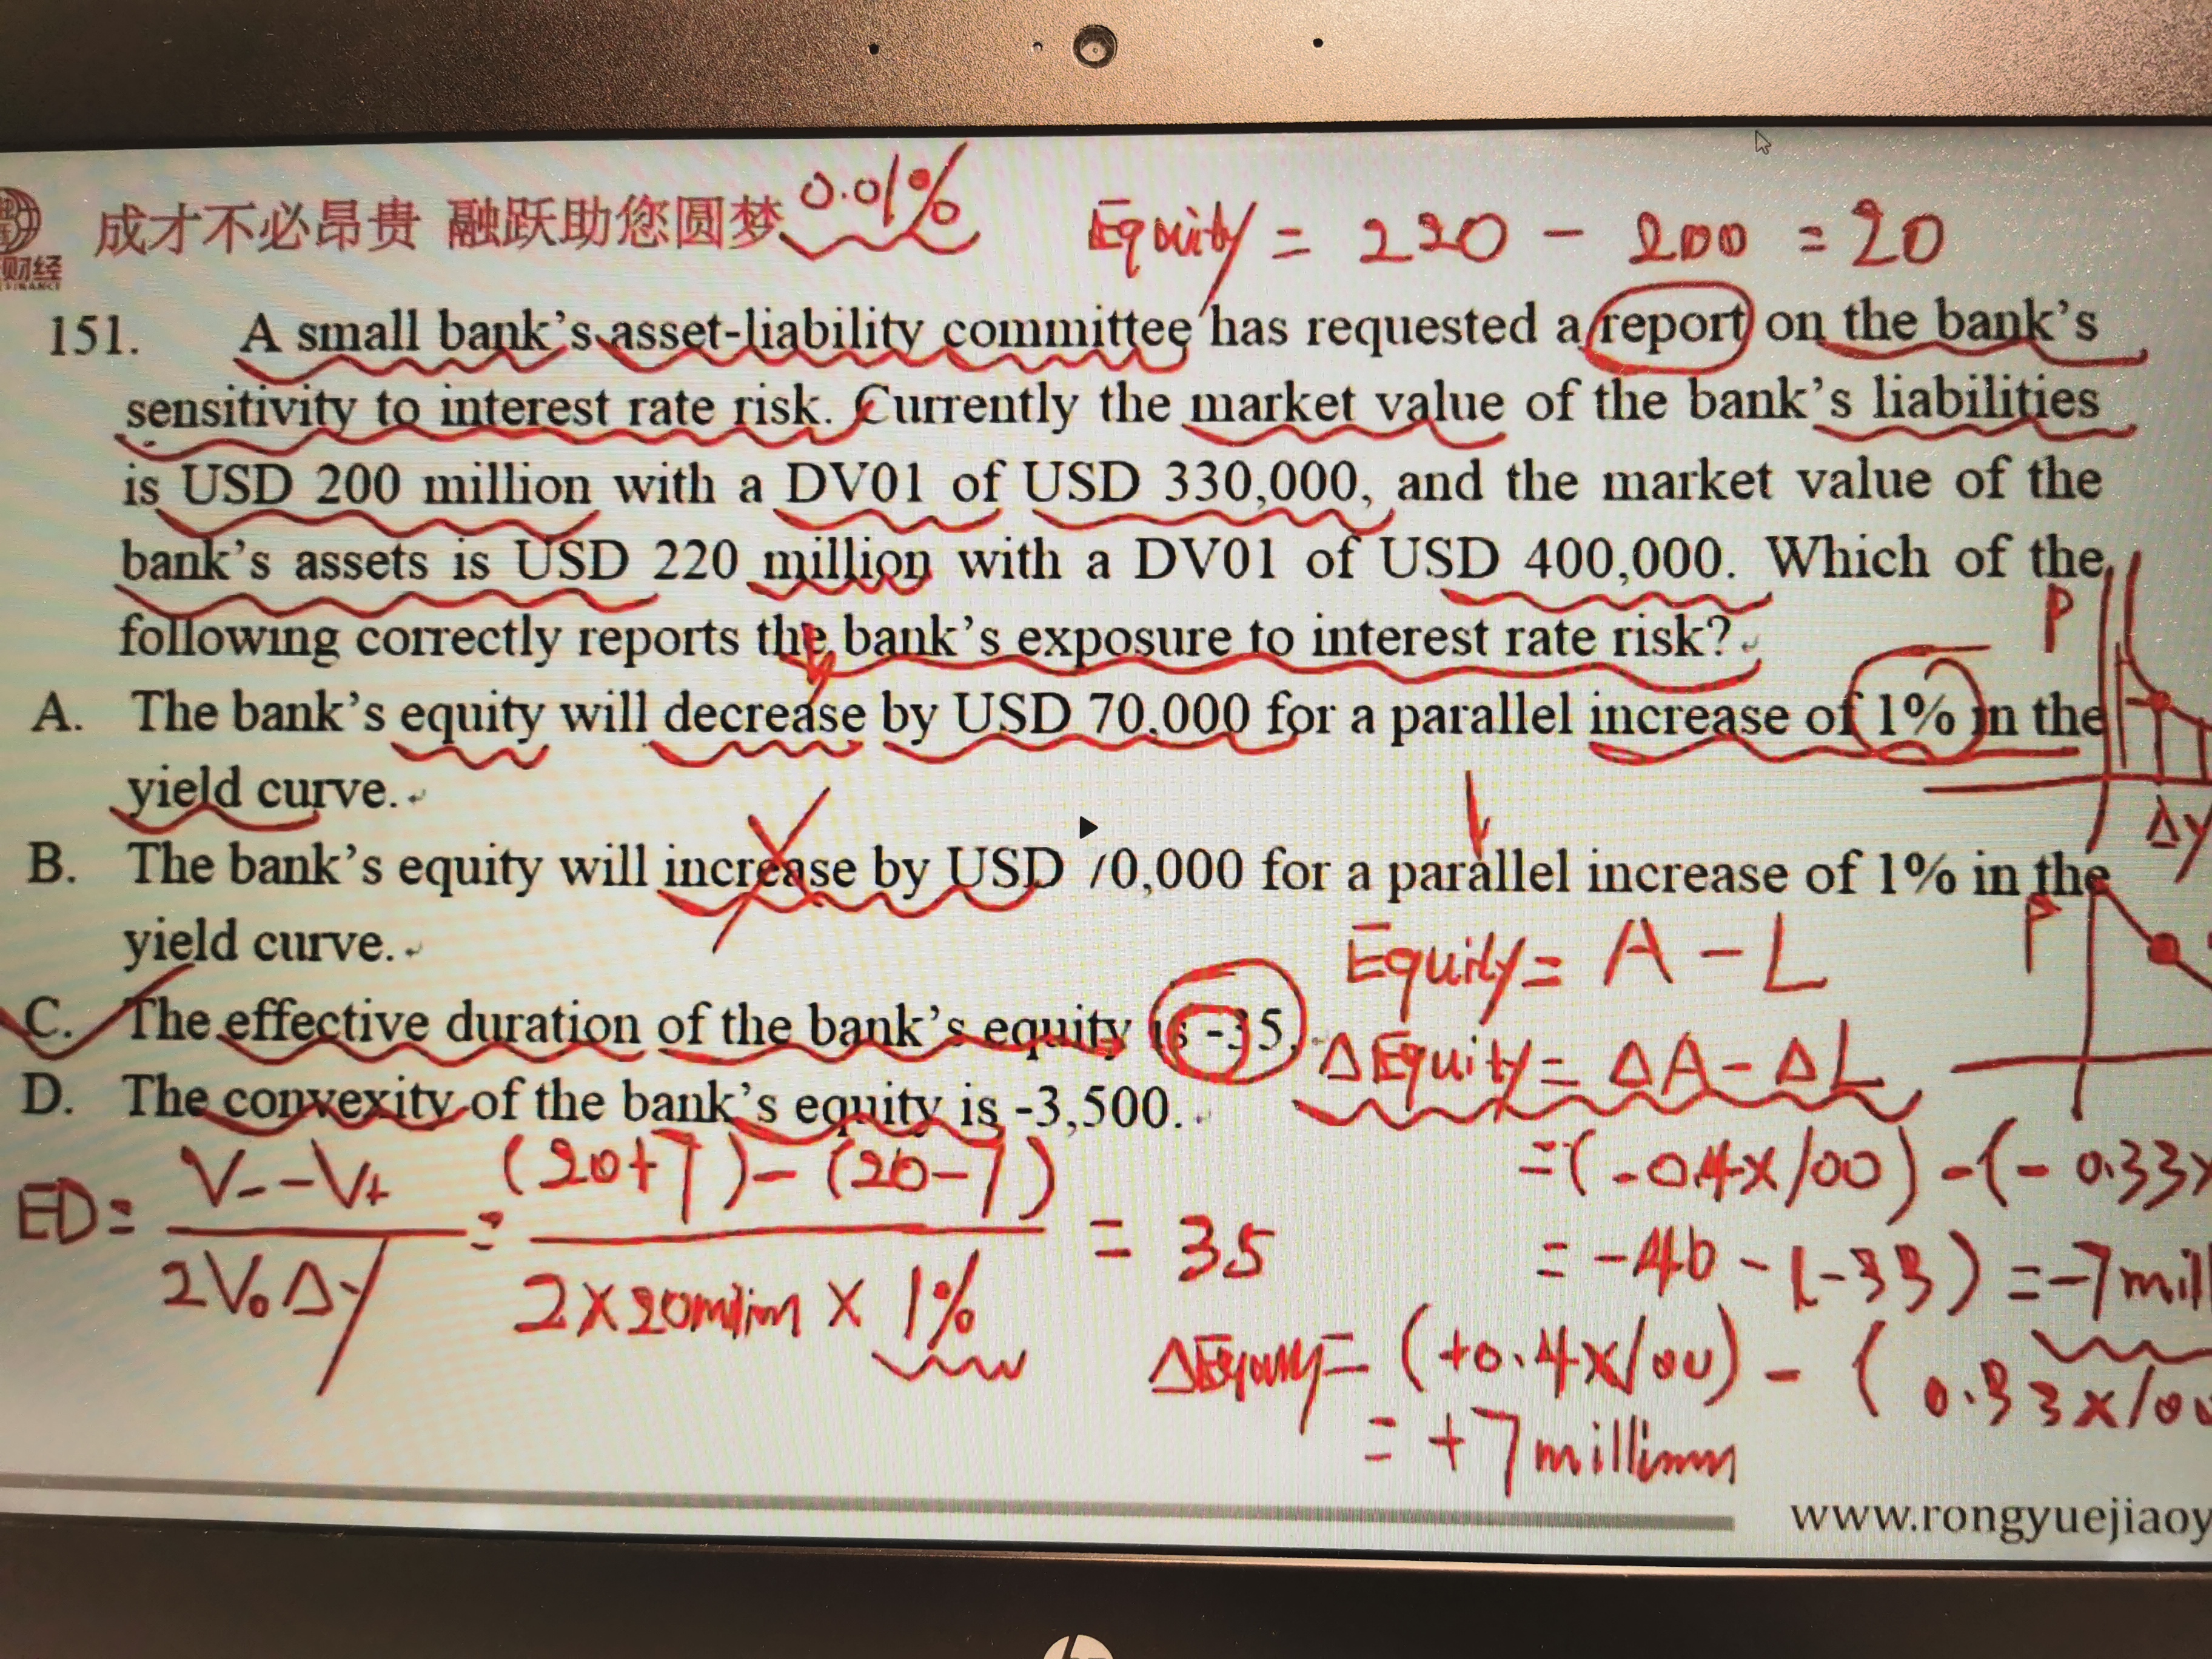 成才不必昂贵 融跃助您圆梦 0.01% Equity = 220 - 200 = 20
财经
FINANCE
151. A small bank's asset-liability committee has requested a report on the bank's
sensitivity to interest rate risk. Currently the market value of the bank's liabilities
is USD 200 million with a DV01 of USD 330,000, and the market value of the
bank's assets is USD 220 million with a DV01 of USD 400,000. Which of the
following correctly reports the bank's exposure to interest rate risk?
P
A. The bank's equity will decrease by USD 70,000 for a parallel increase of 1% in the
yield curve.
Δy
B. The bank's equity will increase by USD 70,000 for a parallel increase of 1% in the
yield curve.
P
Equity = A - L
C. The effective duration of the bank's equity is -35.
ΔEquity = ΔA - ΔL
D. The convexity of the bank's equity is -3,500.
= (-0.4×100) - (- 0.33×
ED = V₋ - V₊ / 2V₀Δy = (20+7) - (20-7) / 2×20million × 1% = 35
= -40 - (-33) = -7mill
ΔEquity = (+0.4×100) - (0.33×100
= +7million
www.rongyuejiaoy